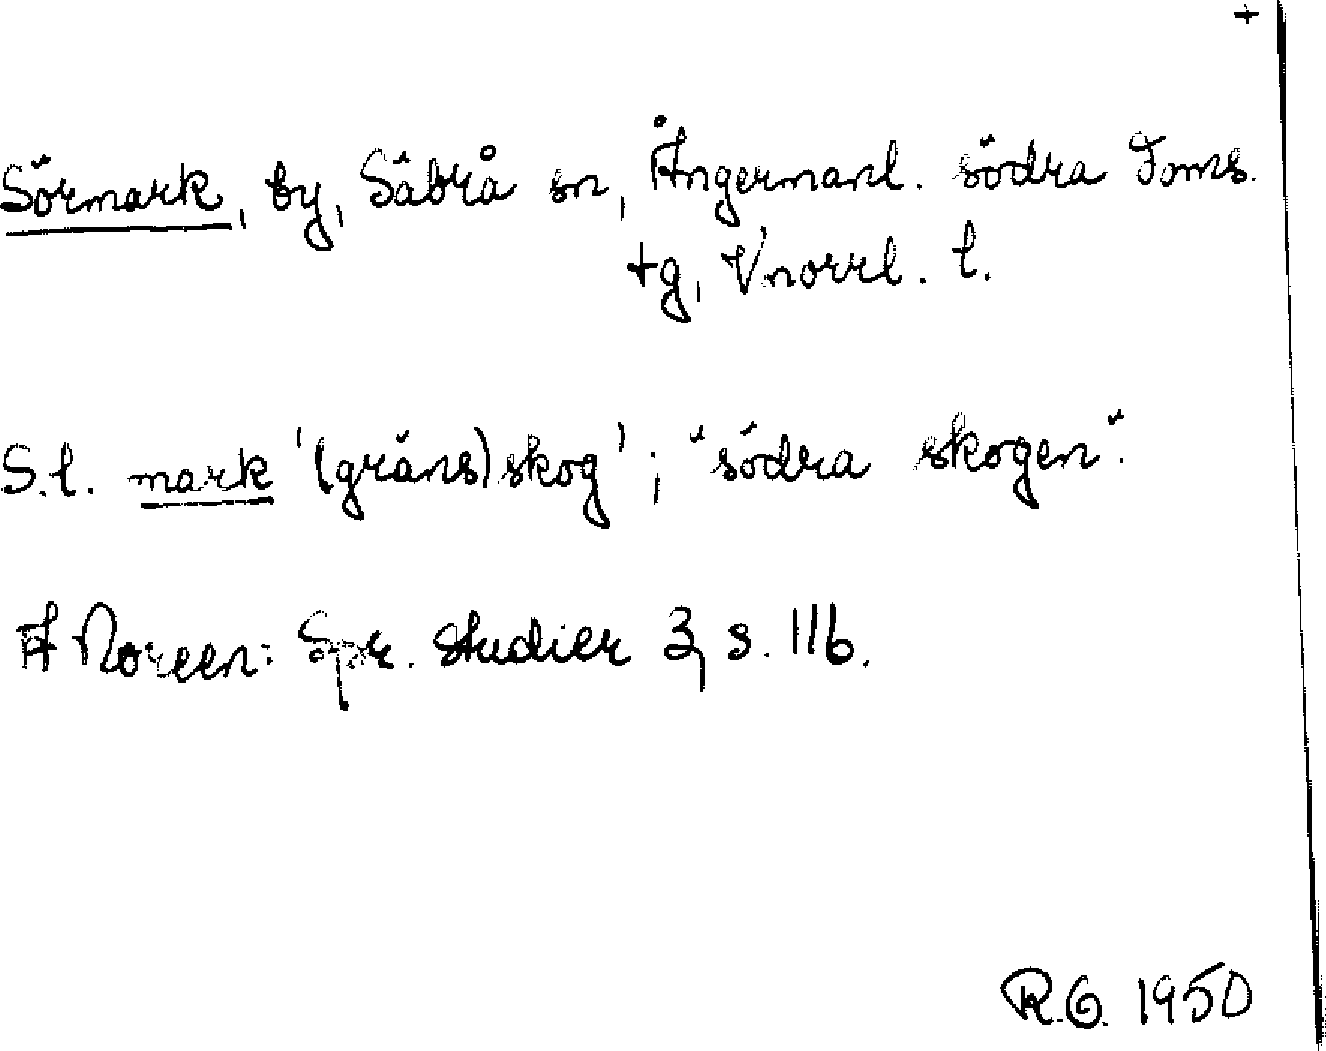 +
Sörmark, by, Säbrå sn, Ångermanl. södra Doms.
tg, V'norrl. l.
S.l. mark '(gräns)skog'; "södra skogen".
A Noreen: Spr. studier 3, s. 116.
R.G. 1950